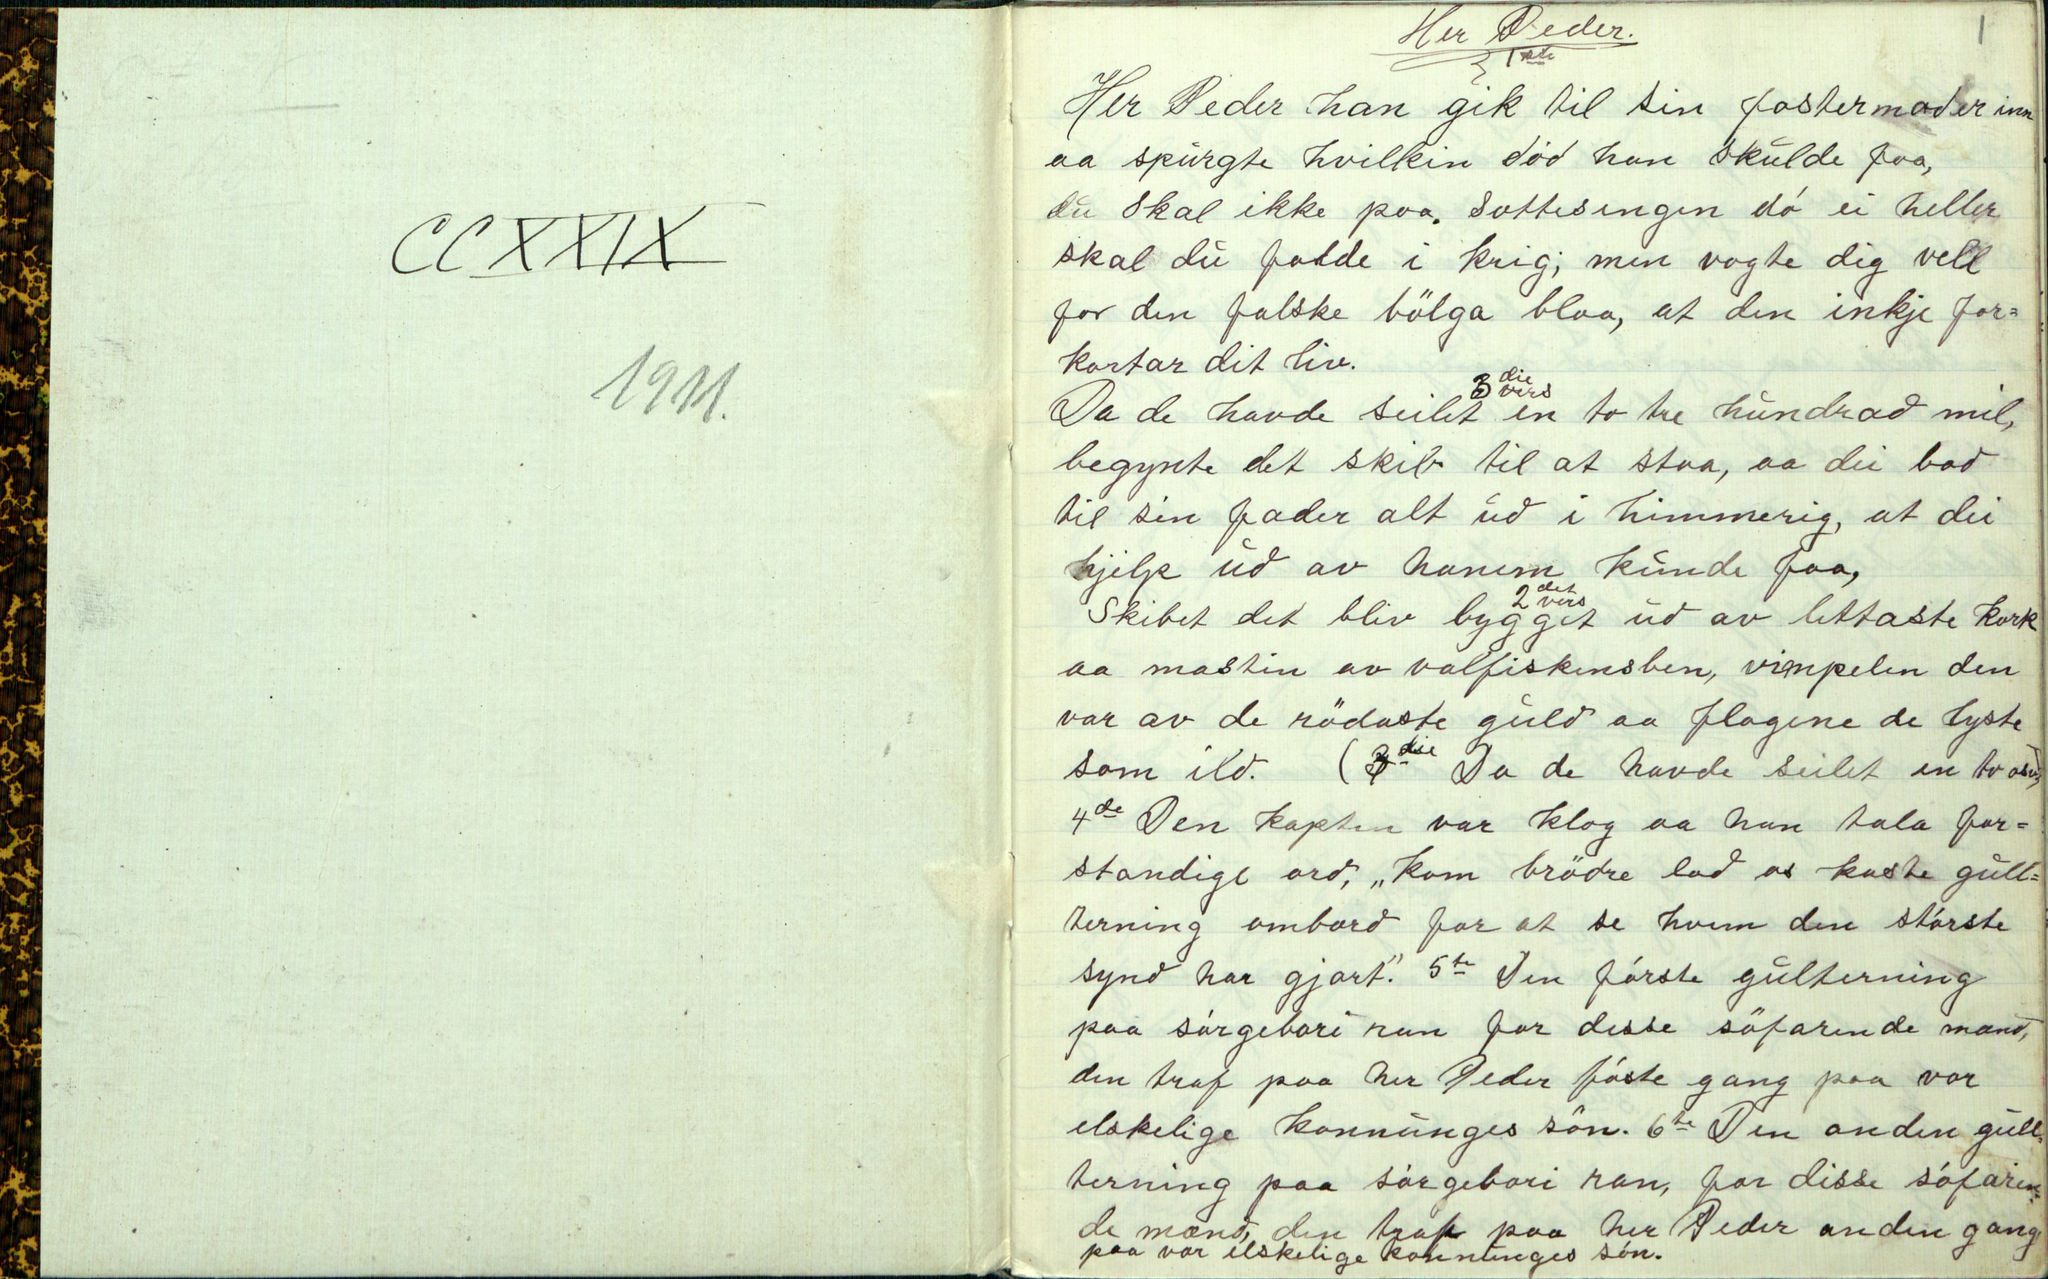 CCXXIX
1911.
1
Her Peder.
1ste
Her Peder han gik til sin fostermoder inn
aa spurgte hvilkin död han skulde faa,
du skal ikke paa sottesengen dö ei heller
skal du falde i krig; men vogte dig vell
for den falske bölga blaa, at den inkje for=
kortar dit liv.
3die vers
Da de havde seilet en to tre hundrad mil,
begynte det skib til at staa, aa dei bad
til sin fader alt ud i himmerig, at dei
hjelp ud av hanem kunde faa,
2det vers
Skibet det bliv bygget ud av lettaste kork
aa mastin av valfiskensben, vimpelen den
var av de rödaste guld aa flagene de lyste
som ild. (3die Da de havde seilet en to osv,
4de Den kapten var klog aa han tala for=
standige ord, „kom brödre lad os kaste gull=
terning ombord for at se hvem den störste
synd har gjort." 5te Den förste gulterning
paa sörgebori ran for disse söfarende mænd,
den traf paa her Peder föste gang paa vor
elskelige konnunges sön. 6te Den anden gull=
terning paa sörgebori ran, for disse söfaren=
de mænd, den traf paa her Peder anden gang
paa vor elskelige konnunges sön.